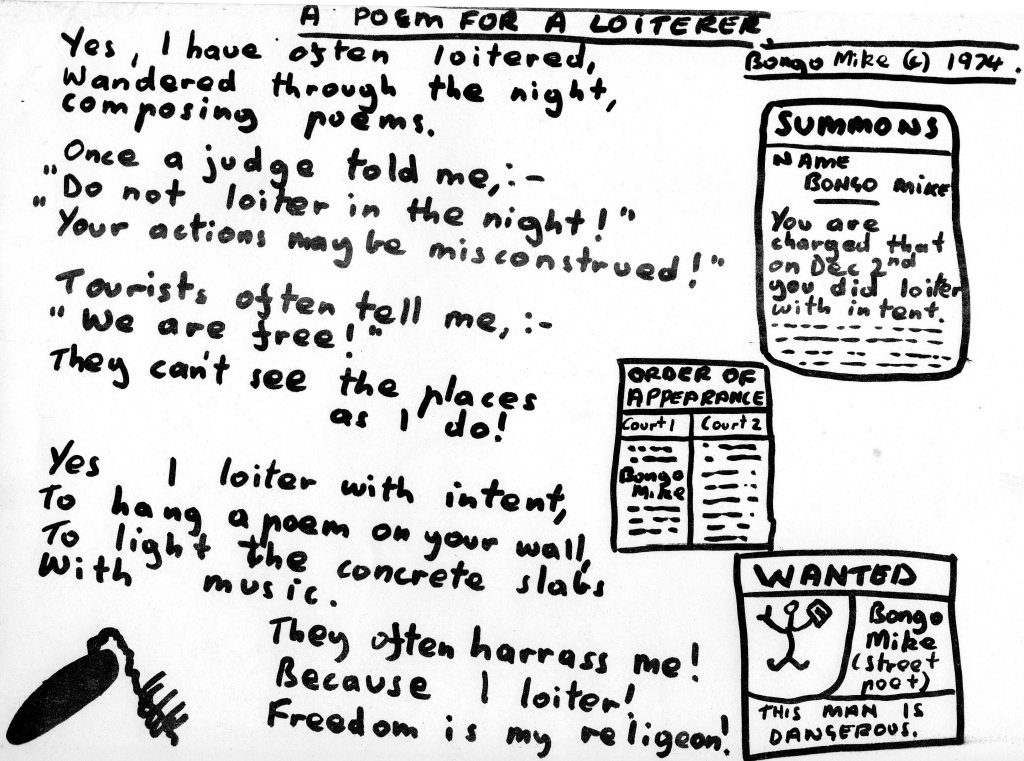 A POEM FOR A LOITERER.
Bongo Mike (c) 1974.
Yes, I have often loitered,
Wandered through the night,
composing poems.
Once a judge told me,:-
"Do not loiter in the night!"
"Your actions may be misconstrued!"
Tourists often tell me,:-
"We are free!"
They can't see the places
as I do!
Yes I loiter with intent,
To hang a poem on your wall,
To light the concrete slabs
With music.
They often harrass me!
Because I loiter!
Freedom is my religeon!
SUMMONS
NAME
BONGO MIKE
You are
charged that
on Dec 2nd
you did loiter
with intent.
ORDER OF
APPEARANCE
Court 1
Court 2
Bongo
Mike
WANTED
Bongo
Mike
(street
poet)
THIS MAN IS
DANGEROUS.